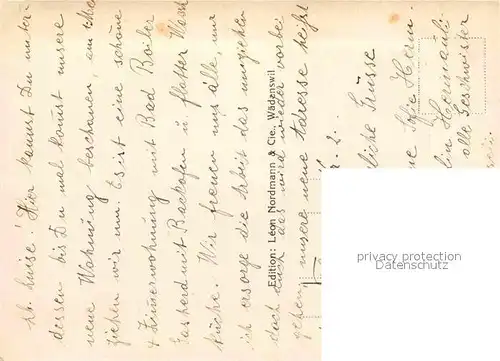 Lb. Luise! Hier kannst Du unter-
dessen bis Du mal kommst unsere
neue Wohnung beschauen, am
ziehen wir um. Es ist eine schöne
4 Zimmerwohnung mit Bad Boiler
Gasherd mit Backofen u. flotter
Küche. Wir freuen uns alle, nur
ich ersorge die Arbeit das umziehen
doch auch das wird wieder vorbei
gehen, unsere neue Adresse heisst
Edition: Léon Nordmann & Cie., Wädenswil
liche Grüsse
Sofie Herm.
Hermanli
alle Geschwister
privacy protection
Datenschutz